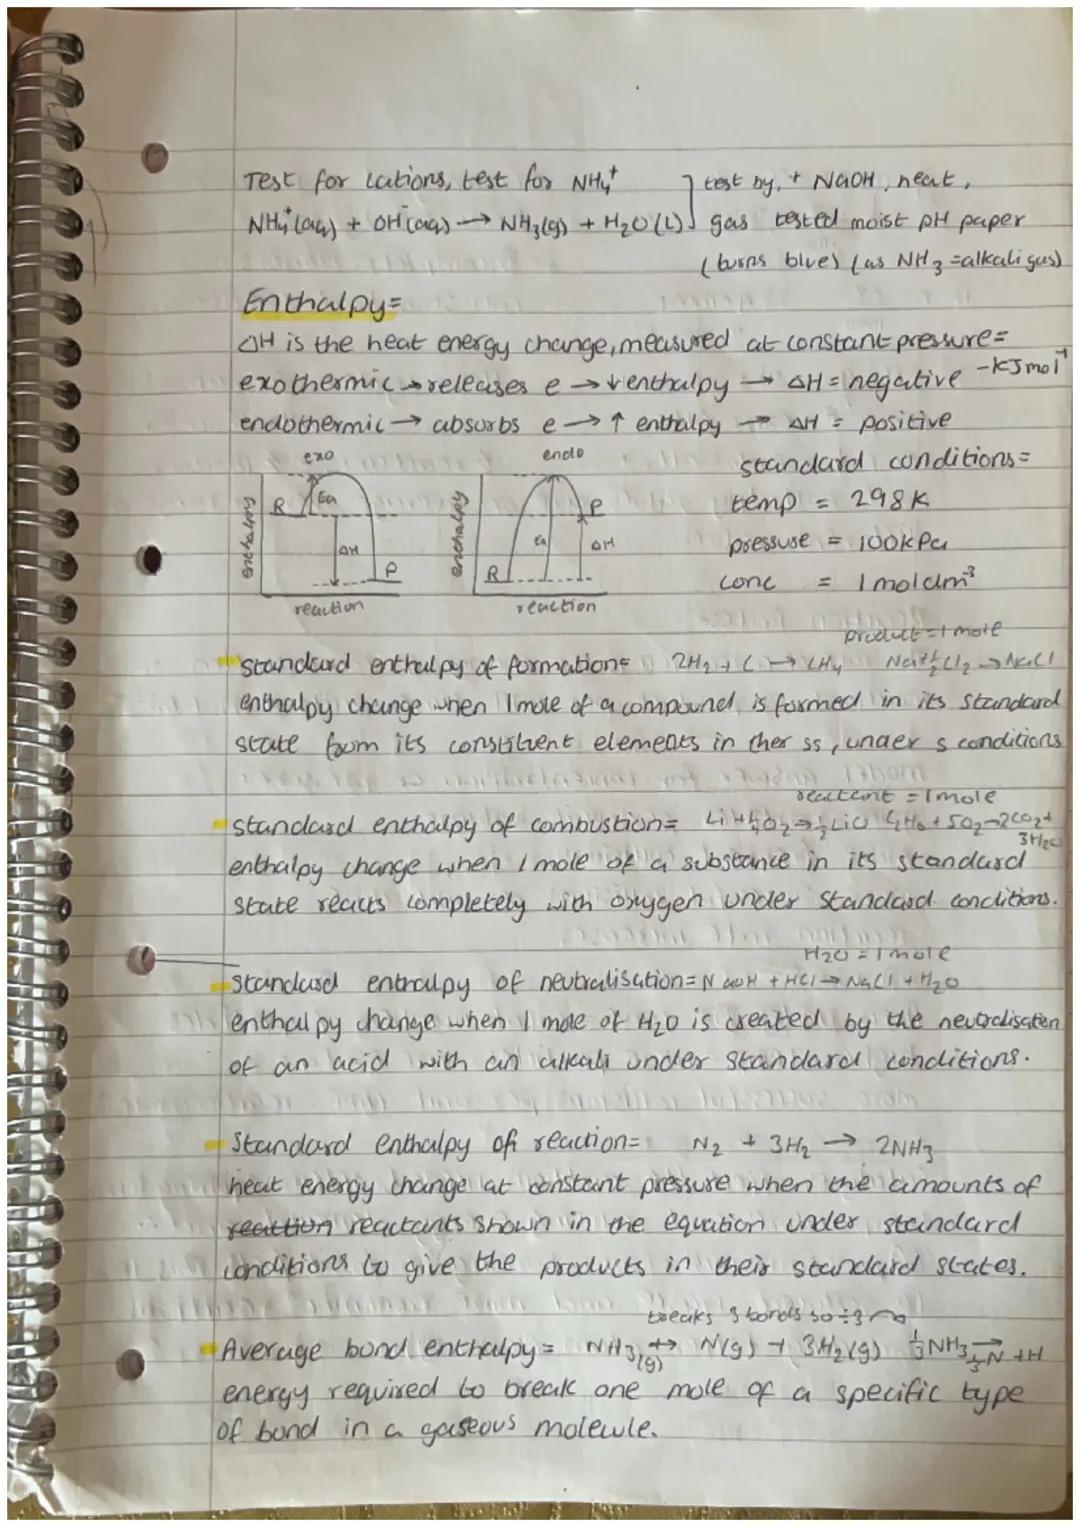 Test for cations, test for NH4+ ] test by, + NaOH, heat,
NH4+(aq) + OH-(aq) → NH3(g) + H2O(L) ] gas tested moist pH paper
(turns blue) (as NH3 = alkali gas)
Enthalpy=
ΔH is the heat energy change, measured at constant pressure=
exothermic → releases e → ↓ enthalpy → ΔH = negative -kJmol-1
endothermic → absorbs e → ↑ enthalpy → ΔH = positive
exo
enthalpy
R
Ea
ΔH
P
reaction
endo
enthalpy
R
Ea
P
ΔH
reaction
standard conditions=
temp = 298K
pressure = 100kPa
conc = 1moldm-3
product = 1 mole
standard enthalpy of formation= 2H2 + C → CH4 Na+½Cl2 → NaCl
enthalpy change when 1 mole of a compound is formed in its standard
state from its constituent elements in ther ss, under s conditions
reactant = 1 mole
standard enthalpy of combustion= Li + ¼O2 → ½LiO + 5O2 → 2CO2 +
3H2O
enthalpy change when 1 mole of a substance in its standard
state reacts completely with oxygen under standard conditions.
H2O = 1 mole
standard enthalpy of neutralisation= NaOH + HCl → NaCl + H2O
enthalpy change when 1 mole of H2O is created by the neutralisation
of an acid with an alkali under standard conditions.
Standard enthalpy of reaction= N2 + 3H2 → 2NH3
heat energy change at constant pressure when the amounts of
reaction reactants shown in the equation under standard
conditions to give the products in their standard states.
breaks 3 bonds so ÷3
Average bond enthalpy= NH3(g) ↔ N(g) + 3H2(g) ⅓NH3 → ⅓N + H
energy required to break one mole of a specific type
of bond in a gaseous molecule.